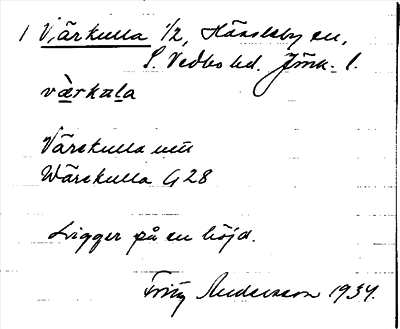 1 Värkulla 1/2, Hässleby sn,
S. Vedbo hd. Jönk. l.
värkula
Värskulla mtl
Wärskulla G28
Ligger på en höjd.
Fritz Andersson 1934.